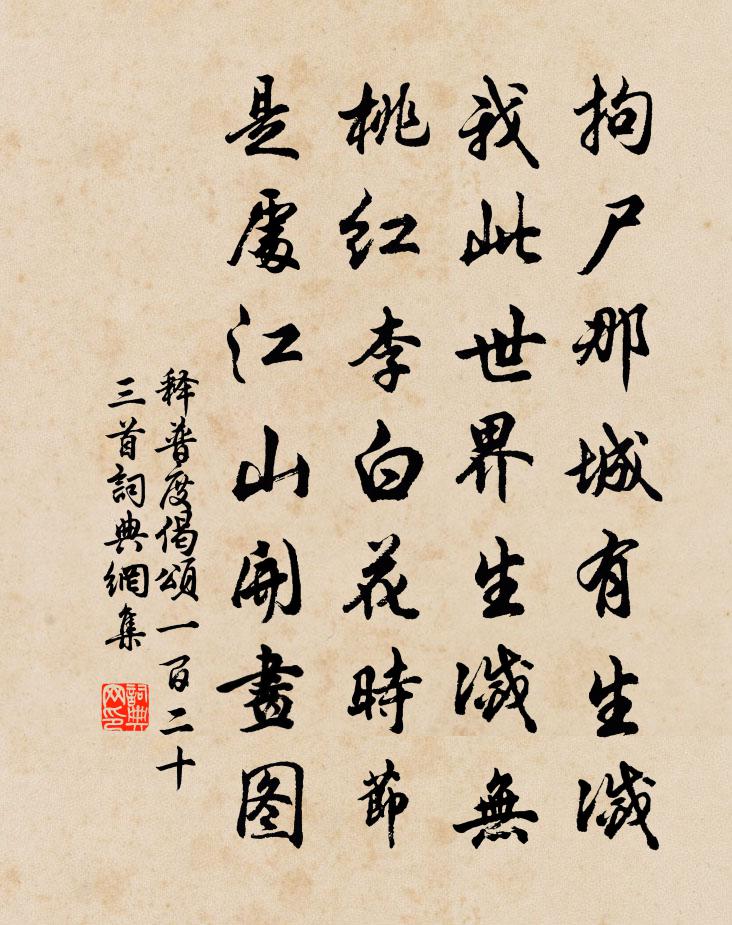 拘尸那城有生滅
我此世界生滅無
桃紅李白花時節
是處江山開畫图
释普度偈頌一百二十
三首詞典網集
詞典
网印